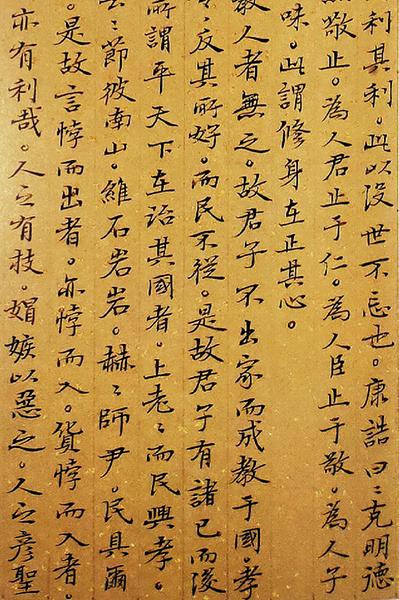 利其利。此以没世不忘也。康誥曰〻克明德
敬止。為人君止于仁。為人臣止于敬。為人子
味。此謂修身在正其心。
教人者無之。故君子不出家而成教于國。孝
反其所好。而民不從。是故君子有諸己而後
所謂平天下在治其國者。上老〻而民興孝。
云〻節彼南山。維石岩岩。赫〻師尹。民具爾
。是故言悖而出者。亦悖而入。貨悖而入者。
亦有利哉。人之有技。媢嫉以惡之。人之彥聖